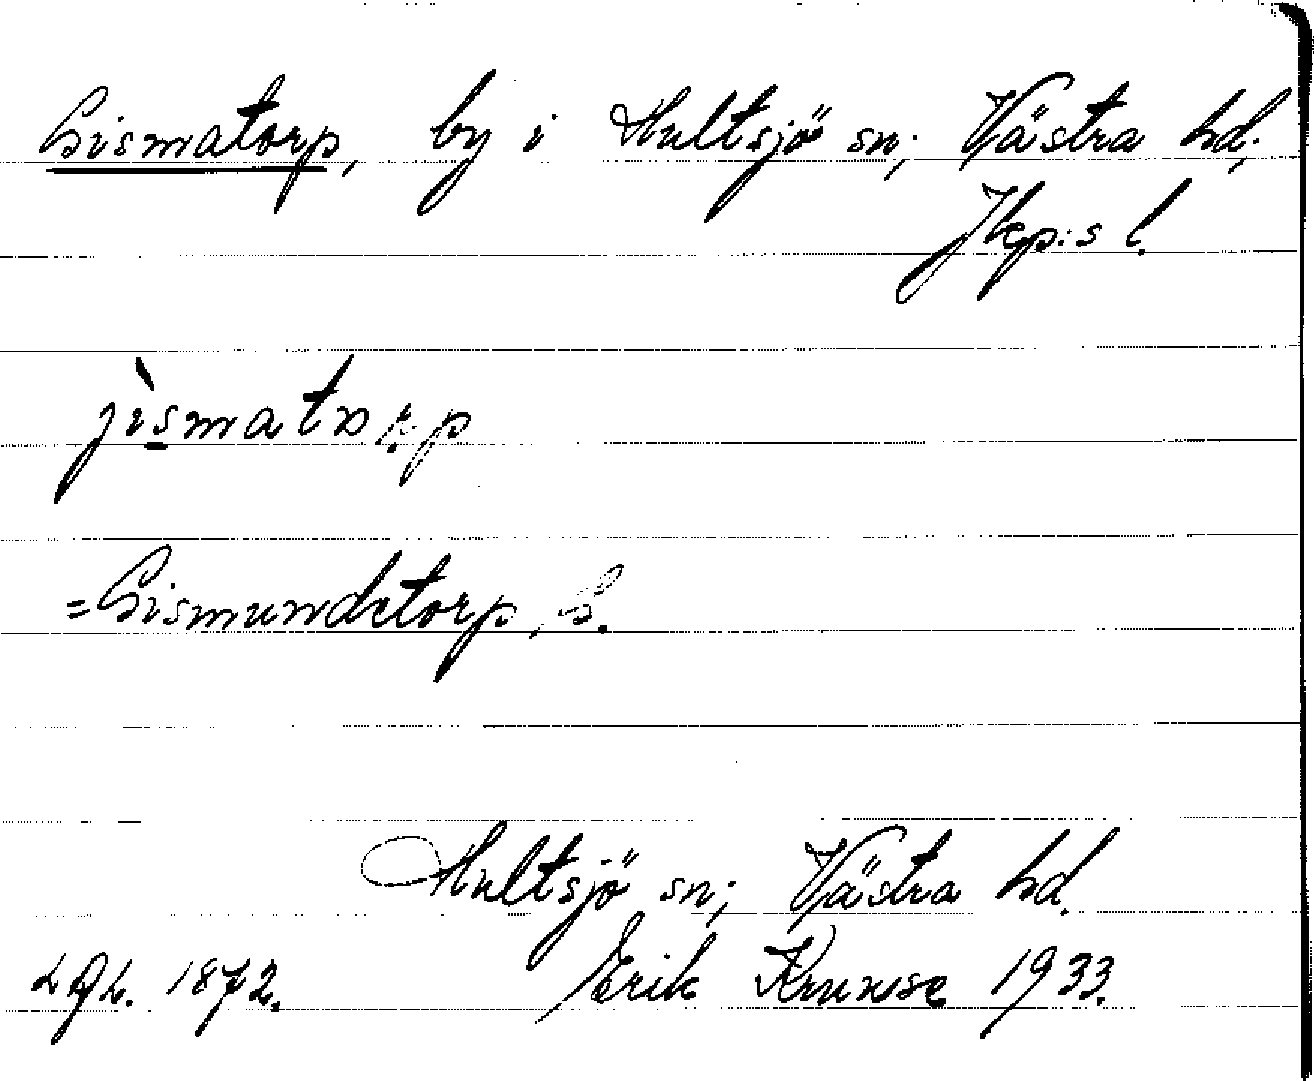 Gismatorp, by i Hultsjö sn; Västra hd;
Jkp:s l.
jìsmatorp
=Gismundetorp, G.
Hultsjö sn; Västra hd.
1872. Erik Kruuse 1933.